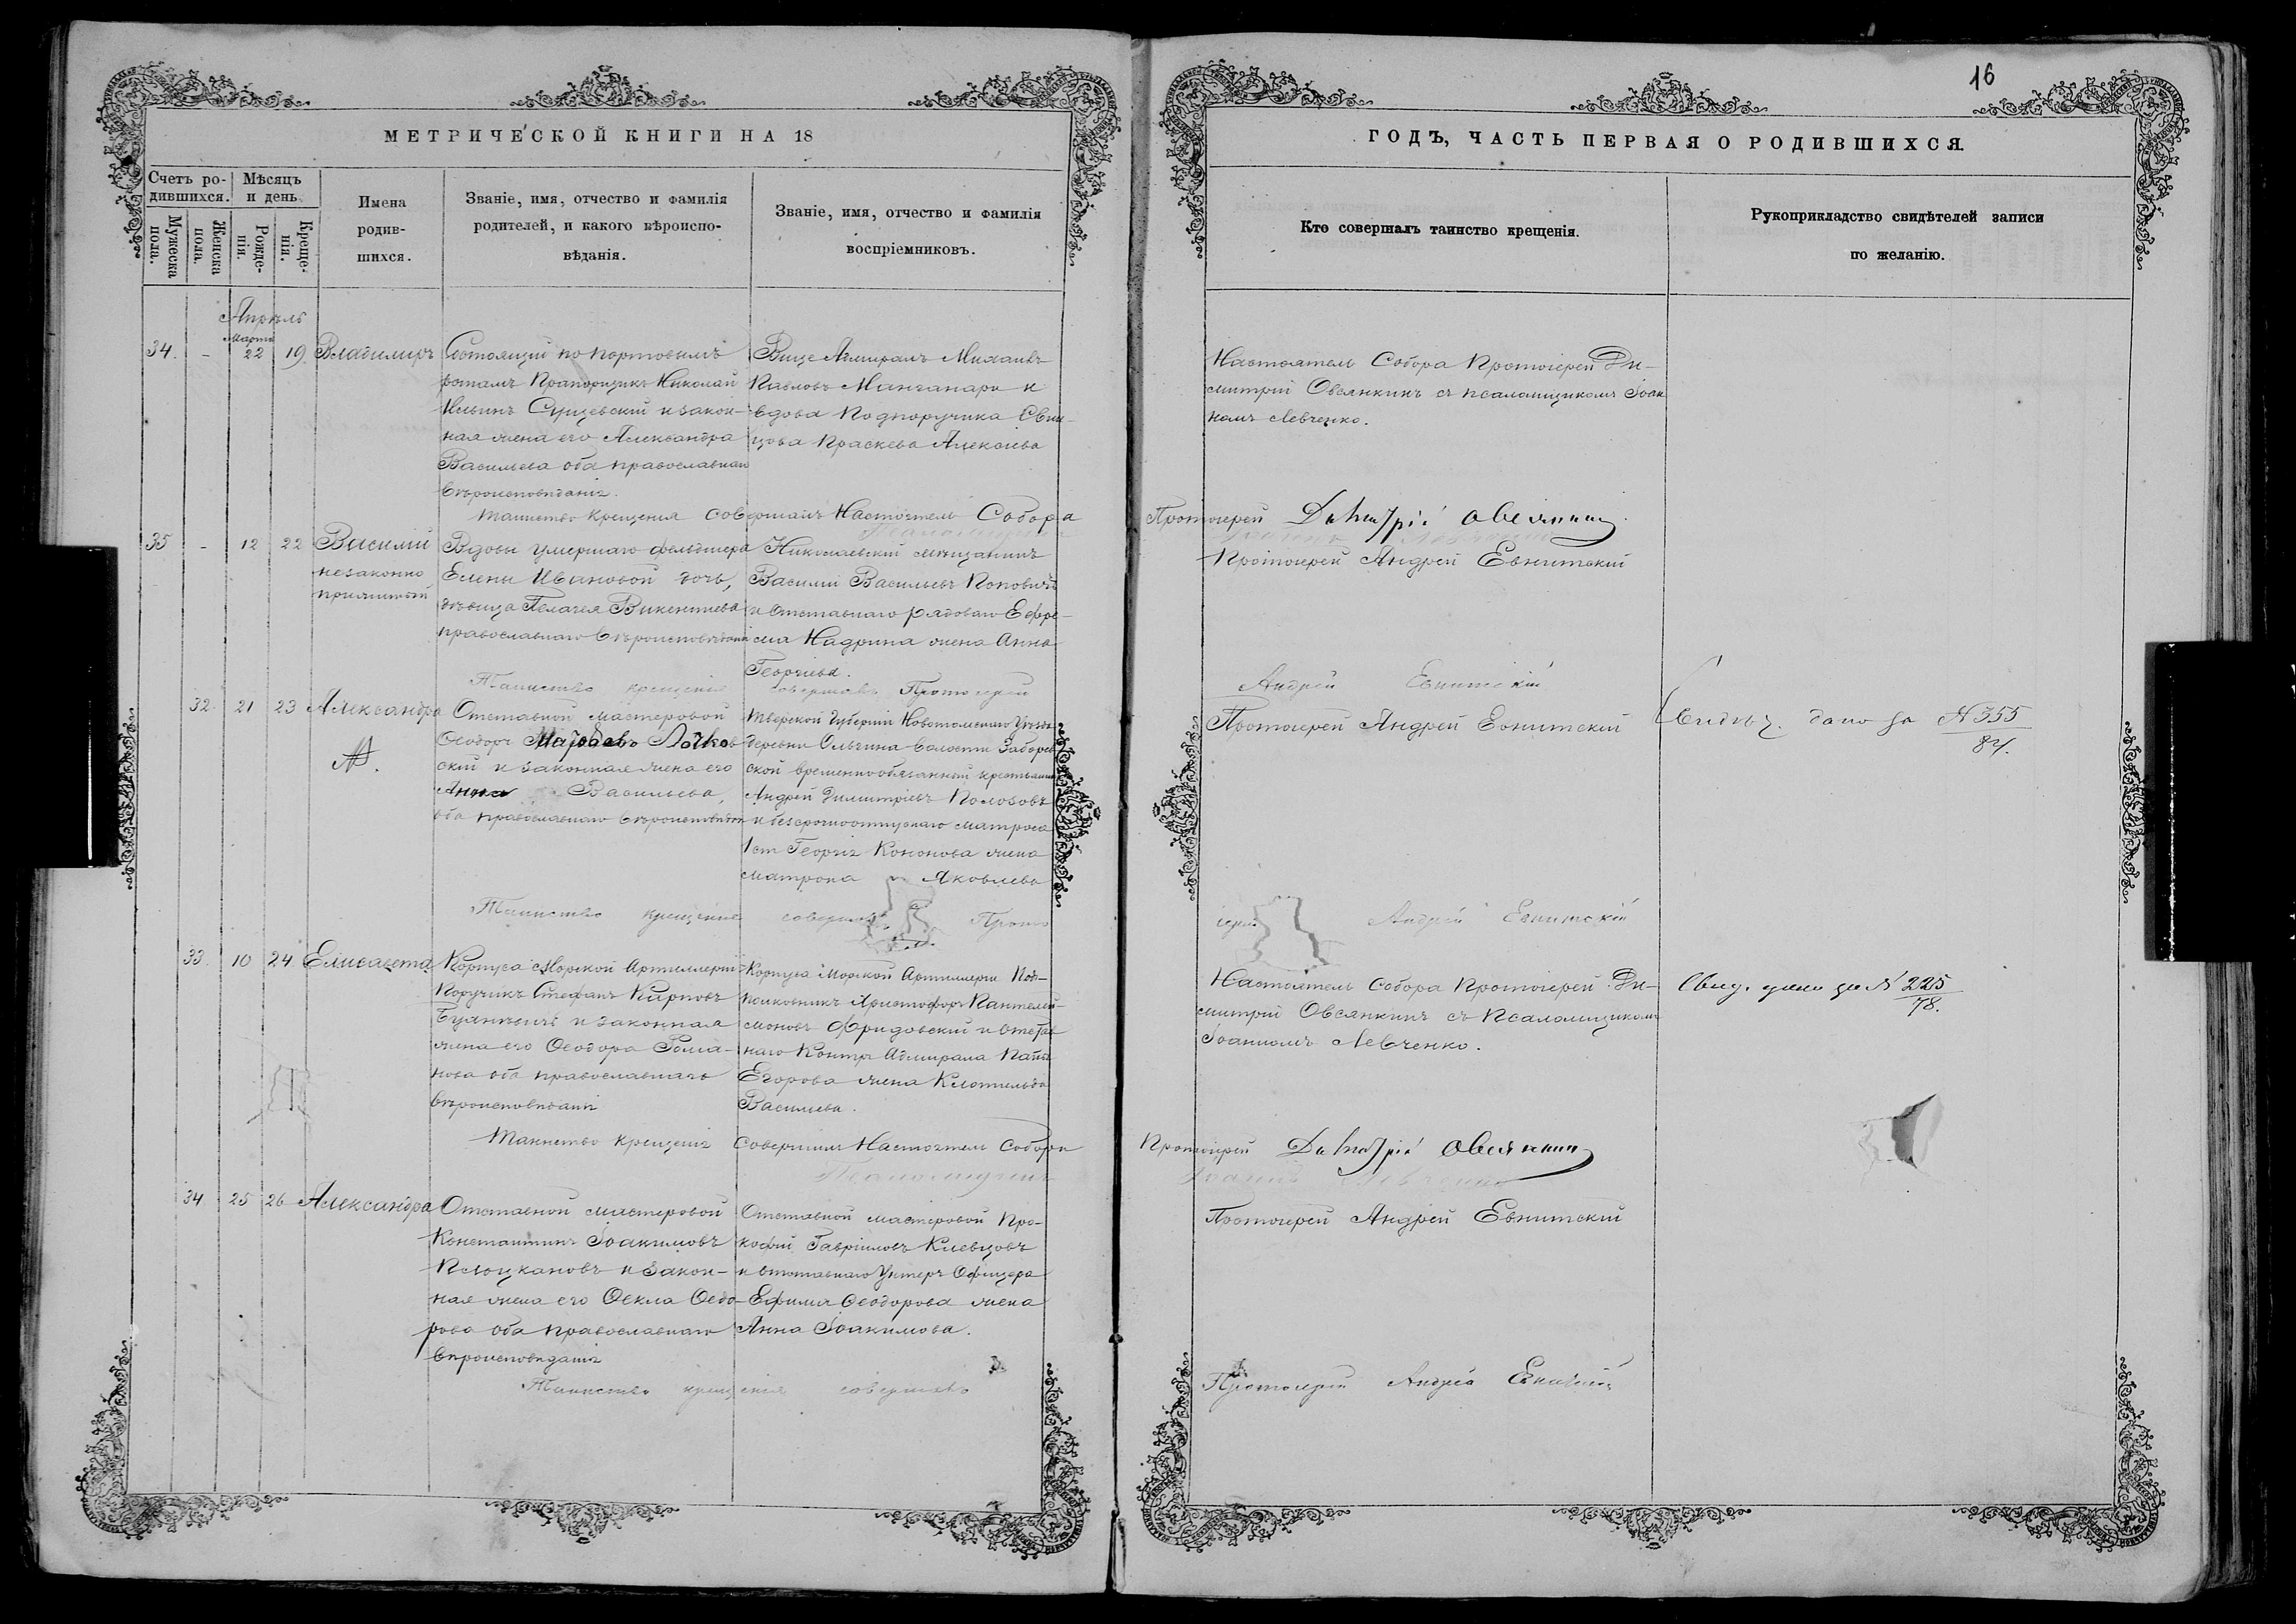 16
МЕТРИЧЕСКОЙ КНИГИ НА 18
ГОДЪ, ЧАСТЬ ПЕРВАЯ О РОДИВШИХСЯ.
Счетъ ро-
дившихся.
Мужеска
пола.
Женска
пола.
Мѣсяцъ
и день.
Рожде-
нія.
Креще-
нія.
Имена
родив-
шихся.
Званіе, имя, отчество и фамилія
родителей, и какого вѣроиспо-
вѣданія.
Званіе, имя, отчество и фамилія
воспріемниковъ.
Кто совершалъ таинство крещенія.
Рукоприкладство свидѣтелей записи
по желанію.
Апрѣль
34. - Марта 22 19. Владимиръ
Состоящій по портовымъ
ротамъ Прапорщикъ Николай
Ильинъ Сущевскій и закон-
ная жена его Александра
Васильева оба православнаго
вѣроисповѣданія.
Вице Адмиралъ Михаилъ
Павловъ Манганари и
вдова Подпоручика
Праскева Алексіева
Настоятель Собора Протоіерей Ди-
митрій Овсянкинъ съ псаломщикомъ Іоан
номъ Левченко.
Таинство крещенія совершалъ Настоятель Собора Протоіерей Димитрій Овсянкинъ
Псаломщикъ Іоаннъ Левченко
35 - 12 22 Василій
незаконно
прижитый
Вдовы умершаго фельдшера
Елены Ивановой дочь,
дѣвица Пелагея Викентіева
православнаго вѣроисповѣданія
Николаевскій мѣщанинъ
Василій Васильевъ Поповичъ
и отставнаго рядоваго Ефре-
ма Надрина жена Анна
Георгіева.
Протоіерей Андрей Евнитскій
Таинство крещенія совершалъ Протоіерей Андрей Евнитскій
32. 21 23 Александра
Отставной мастеровой
Ѳеодоръ
скій и законная жена его
Анна Васильева,
оба православнаго вѣроисповѣданія
Тверской Губерніи Уѣзда
деревни Ольгина волости
ской временнообязанный крестьянинъ
Андрей Димитріевъ Полозовъ
и безсрочноотпускнаго матроса
1 ст Георгія Кононова жена
Матрона Яковлева
Протоіерей Андрей Евнитскій
Свидѣт. дано за № 355
84.
Таинство крещенія совершалъ Прото
іерей Андрей Евнитскій
33. 10 24 Елисавета
Корпуса Морской Артиллеріи
Поручикъ Стефанъ Карповъ
и законная
жена его Ѳеодора Рома-
нова оба православнаго
вѣроисповѣданія
Корпуса Морской Артиллеріи Под-
полковникъ Христофоръ Пантелей-
моновъ Фридовскій и отстав
наго Контръ Адмирала
Егорова жена Клотильда
Васильева.
Настоятель Собора Протоіерей Ди-
митрій Овсянкинъ съ Псаломщикомъ
Іоанномъ Левченко.
Свид. дано за № 225
78.
Таинство крещенія совершилъ Настоятель Собора Протоіерей Димитрій Овсянкинъ
Псаломщикъ Іоаннъ Левченко
34. 25 26 Александра
Отставной мастеровой
Константинъ Іоакимовъ
Плоцкановъ и закон-
ная жена его Ѳекла Ѳедо-
рова оба православнаго
вѣроисповѣданія
Отставной мастеровой Про-
кофій Гавріиловъ Клевцовъ
и отставнаго Унтеръ Офицера
Ефима Ѳеодорова жена
Анна Іоакимова.
Протоіерей Андрей Евнитскій
Таинство крещенія совершалъ
Протоіерей Андрей Евнитскій